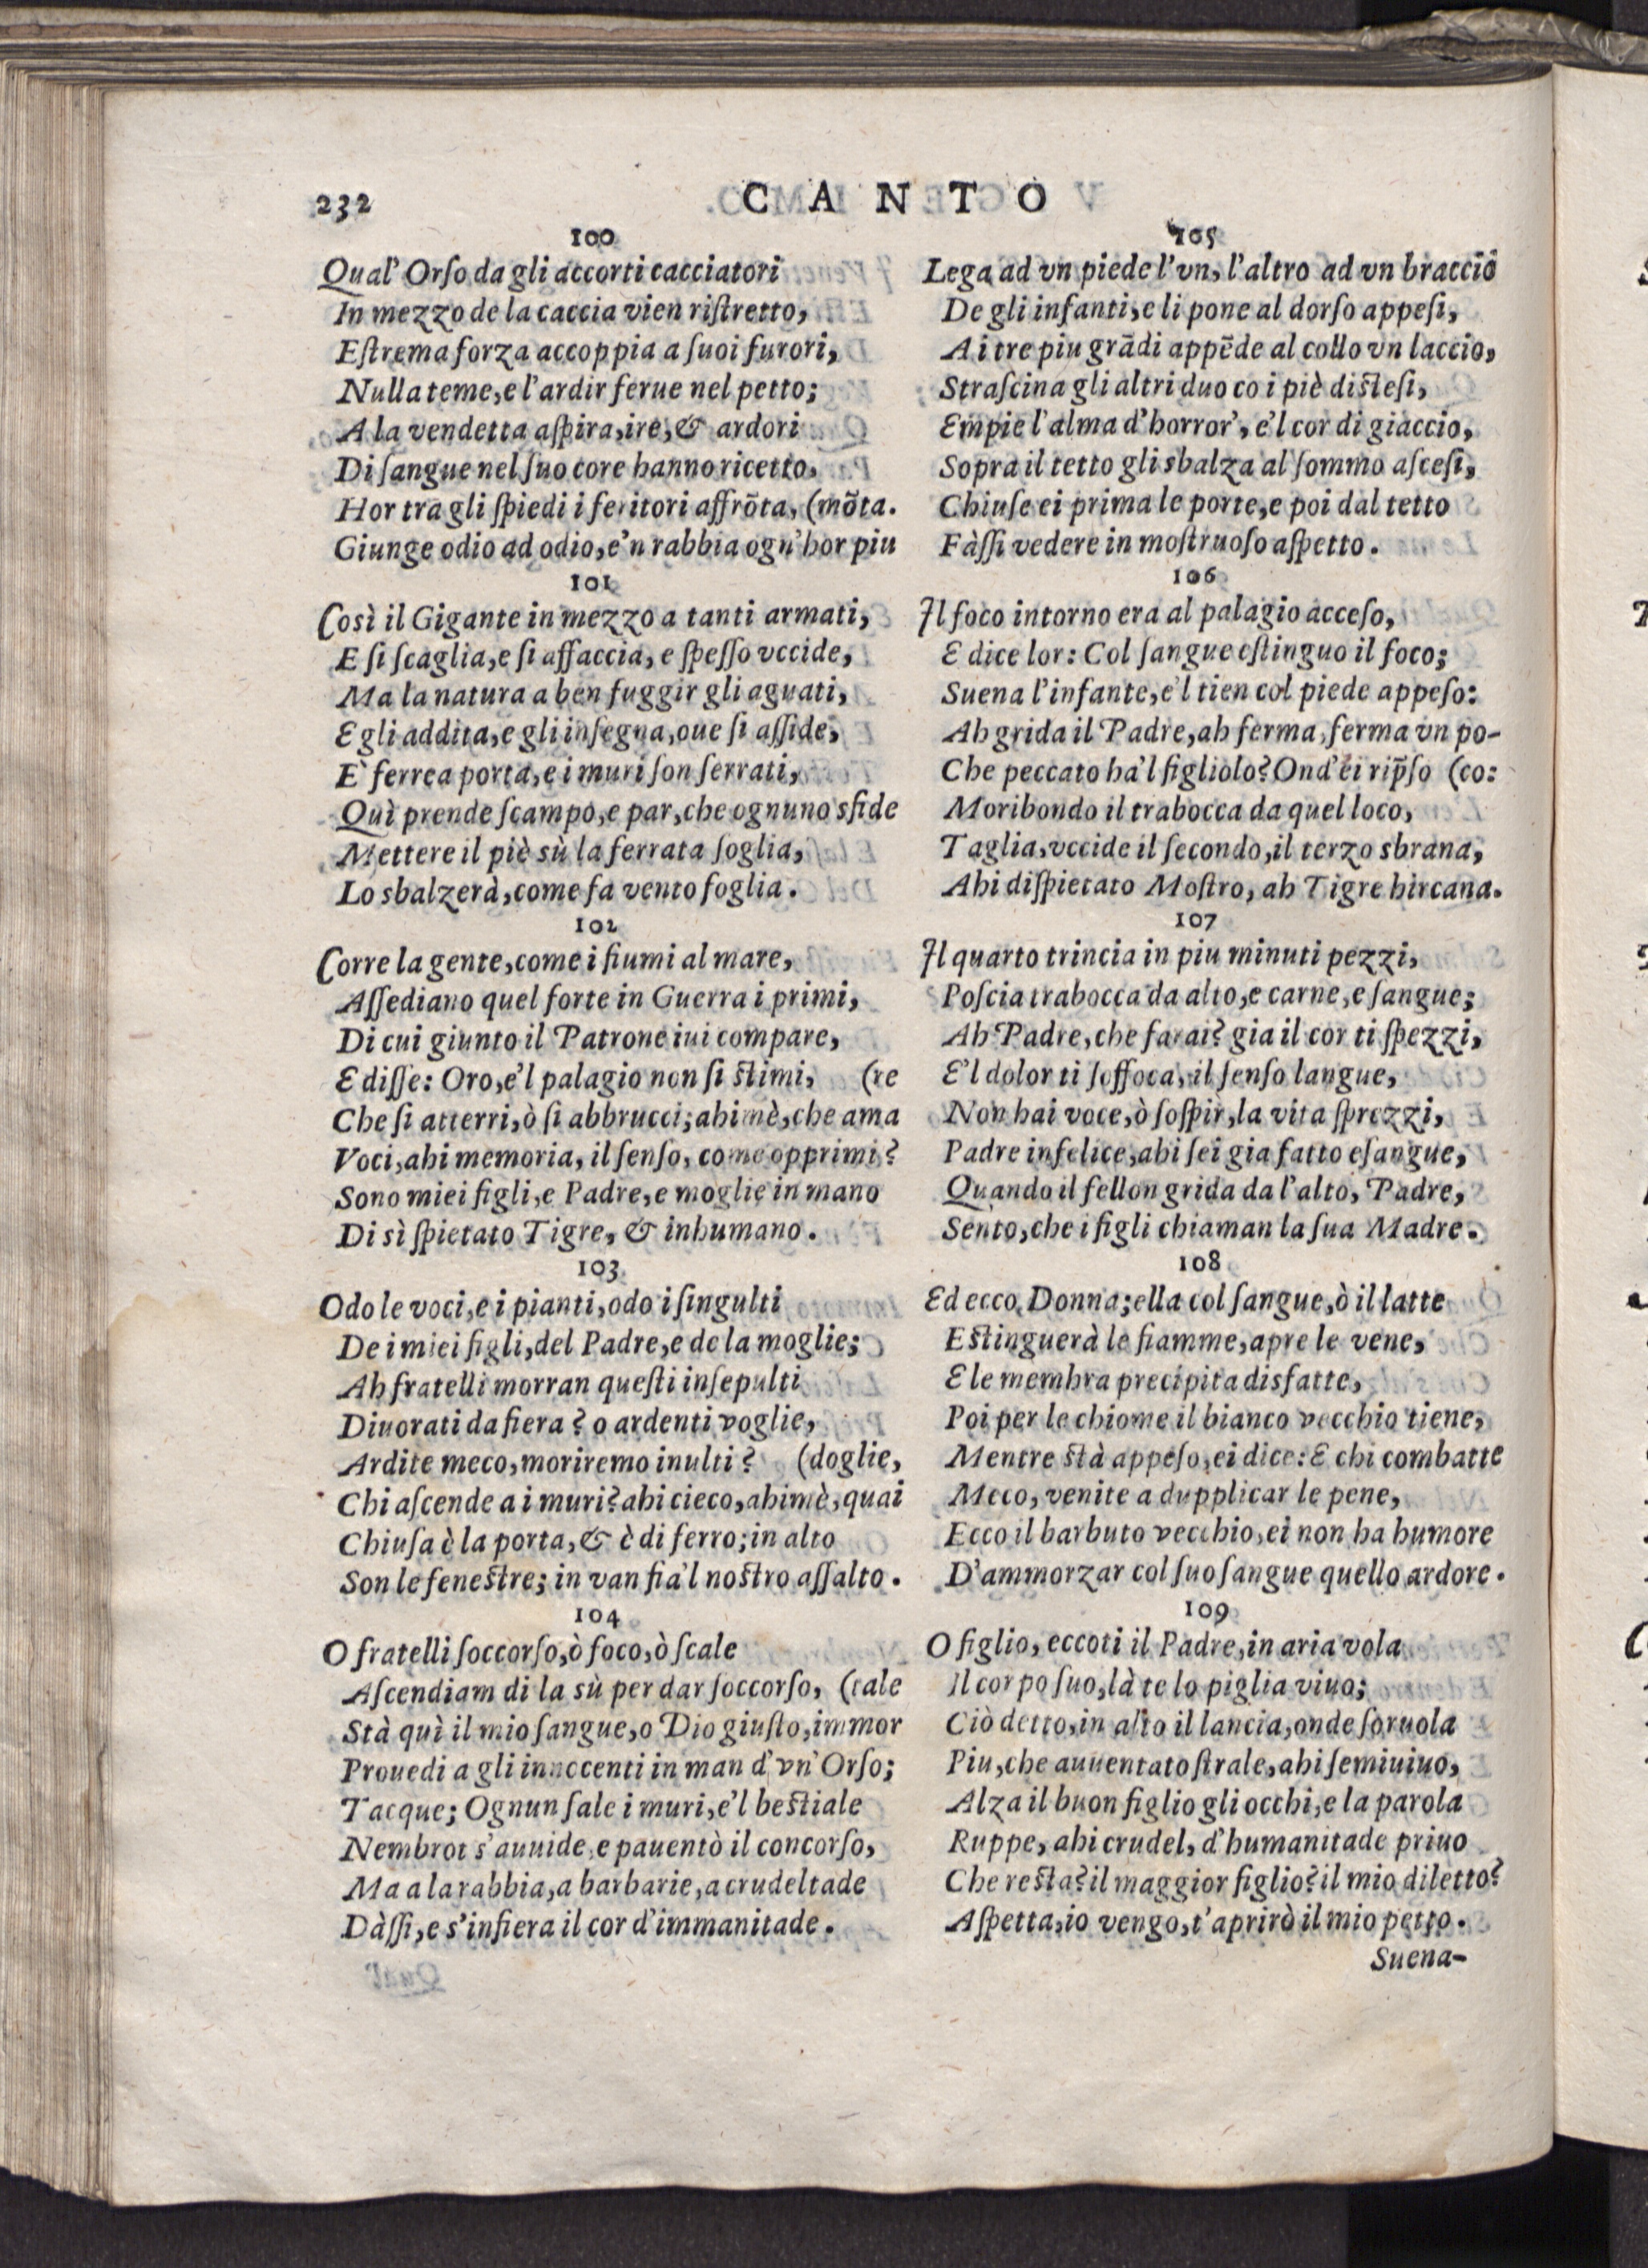 232
CANTO
100
Qual' Orſo da gli accorti cacciatori
In mezzo de la caccia vien riſtretto,
Eſtrema forza accoppia a ſuoi furori,
Nulla teme, e l'ardir ferue nel petto;
A la vendetta aſpira, ire, & ardori
Di ſangue nel ſuo core hanno ricetto,
Hor tra gli ſpiedi i feritori affrõta, (mõta.
Giunge odio ad odio, e'n rabbia ogn'hor piu
101
Così il Gigante in mezzo a tanti armati,
E ſi ſcaglia, e ſi affaccia, e ſpeſſo vccide,
Ma la natura a ben fuggir gli aguati,
E gli addita, e gli inſegna, oue ſi aſſide,
E` ferrea porta, e i muri ſon ſerrati,
Quì prende ſcampo, e par, che ognuno sfide
Mettere il piè sù la ferrata ſoglia,
Lo sbalzerà, come fa vento foglia.
102
Corre la gente, come i fiumi al mare,
Aſſediano quel forte in Guerra i primi,
Di cui giunto il Patrone iui compare,
E diſſe: Oro, e'l palagio non ſi stimi, (re
Che ſi atterri, ò ſi abbrucci; ahimè, che ama
Voci, ahi memoria, il ſenſo, come opprimi?
Sono miei figli, e Padre, e moglie in mano
Di sì ſpietato Tigre, & inhumano.
103
Odo le voci, e i pianti, odo i ſingulti
De i miei figli, del Padre, e de la moglie;
Ah fratelli morran queſti inſepulti
Diuorati da fiera? o ardenti voglie,
Ardite meco, moriremo inulti? (doglie,
Chi aſcende a i muri? ahi cieco, ahimè, quai
Chiuſa è la porta, & è di ferro; in alto
Son le feneſtre; in van fia'l noſtro aſſalto.
104
O fratelli ſoccorſo, ò foco, ò ſcale
Aſcendiam di la sù per dar ſoccorſo, (tale
Stà quì il mio ſangue, o Dio giuſto, immor
Prouedi a gli innocenti in man d'vn' Orſo;
Tacque; Ognun ſale i muri, e'l beſtiale
Nembrot s'auuide, e pauentò il concorſo,
Ma a la rabbia, a barbarie, a crudeltade
Dàſſi, e s'infiera il cor d'immanitade.
105
Lega ad vn piede l'vn, l'altro ad vn braccio
De gli infanti, e li pone al dorſo appeſi,
A i tre piu grãdi appẽde al collo vn laccio,
Straſcina gli altri duo co i piè diſteſi,
Empie l'alma d'horror', e'l cor di giaccio,
Sopra il tetto gli sbalza al ſommo aſceſi,
Chiuſe ei prima le porte, e poi dal tetto
Fàſſi vedere in moſtruoſo aſpetto.
106
Il foco intorno era al palagio acceſo,
E dice lor: Col ſangue eſtinguo il foco;
Suena l'infante, e'l tien col piede appeſo:
Ah grida il Padre, ah ferma, ferma vn po-
Che peccato ha'l figliolo? Ond'ei rip̃ſo (co:
Moribondo il trabocca da quel loco,
Taglia, vccide il ſecondo, il terzo sbrana,
Ahi diſpietato Moſtro, ah Tigre hircana.
107
Il quarto trincia in piu minuti pezzi,
Poſcia trabocca da alto, e carne, e ſangue;
Ah Padre, che farai? gia il cor ti ſpezzi,
E'l dolor ti ſoffoca, il ſenſo langue,
Non hai voce, ò ſoſpir, la vita ſprezzi,
Padre infelice, ahi ſei gia fatto eſangue,
Quando il fellon grida da l'alto, Padre,
Sento, che i figli chiaman la ſua Madre.
108
Ed ecco Donna; ella col ſangue, ò il latte
Eſtinguerà le fiamme, apre le vene,
E le membra precipita disfatte,
Poi per le chiome il bianco vecchio tiene,
Mentre ſtà appeſo, ei dice: E chi combatte
Meco, venite a dupplicar le pene,
Ecco il barbuto vecchio, ei non ha humore
D'ammorzar col ſuo ſangue quello ardore.
109
O figlio, eccoti il Padre, in aria vola
Il corpo ſuo, là te lo piglia viuo;
Ciò detto, in alto il lancia, onde ſoruola
Piu, che auuentato ſtrale, ahi ſemiuiuo,
Alza il buon figlio gli occhi, e la parola
Ruppe, ahi crudel, d'humanitade priuo
Che reſta? il maggior figlio? il mio diletto?
Aſpetta, io vengo, t'aprirò il mio petto.
Suena-